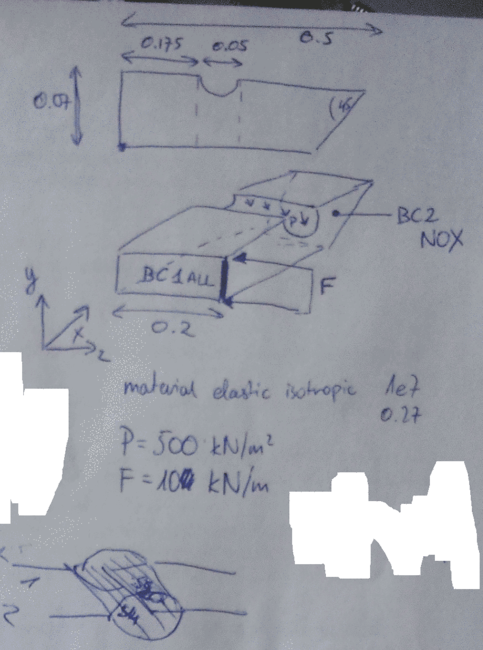 0.5
0.175 0.05
0.07
45
P
BC2
NOX
BC1ALL
F
y
x
z
0.2
material elastic isotropic 1e7
0.27
P=500 kN/m²
F=10 kN/m
1
2